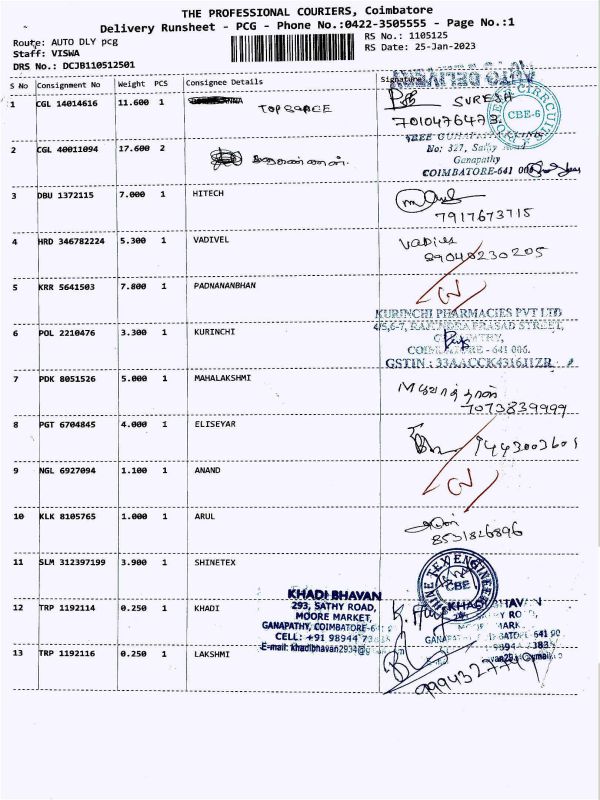 THE PROFESSIONAL COURIERS, Coimbatore
Delivery Runsheet - PCG - Phone No.:0422-3505555 - Page No.:1
Route: AUTO DLY pcg
RS No.: 1105125
Staff: VISWA
RS Date: 25-Jan-2023
DRS No.: DCJB110512501
S No Consignment No Weight PCS Consignee Details Signature
1 CGL 14014616 11.600 1 TOP SPACE SURESH
7010476473
CBE-6
2 CGL 40011094 17.600 2
No: 327, Sathy Road
Ganapathy
COIMBATORE-641 006
3 DBU 1372115 7.000 1 HITECH
7917673715
4 HRD 346782224 5.300 1 VADIVEL
89040230205
5 KRR 5641503 7.800 1 PADNANANBHAN
KURINCHI PHARMACIES PVT LTD
4/5,6-7, RAJENDRA PRASAD STREET,
6 POL 2210476 3.300 1 KURINCHI
COIMBATORE - 641 006.
GSTIN : 33AACCK4316J1ZR
7 PDK 8051526 5.000 1 MAHALAKSHMI
7073839999
8 PGT 6704845 4.000 1 ELISEYAR
9443003601
9 NGL 6927094 1.100 1 ANAND
10 KLK 8105765 1.000 1 ARUL
8531826896
11 SLM 312397199 3.900 1 SHINETEX
SHINE TEX ENGINEERS
CBE
KHADI BHAVAN
293, SATHY ROAD,
12 TRP 1192114 0.250 1 KHADI
MOORE MARKET,
GANAPATHY, COIMBATORE-641 0
CELL: +91 98944 73
E-mail: khadibhavan2934@g
13 TRP 1192116 0.250 1 LAKSHMI